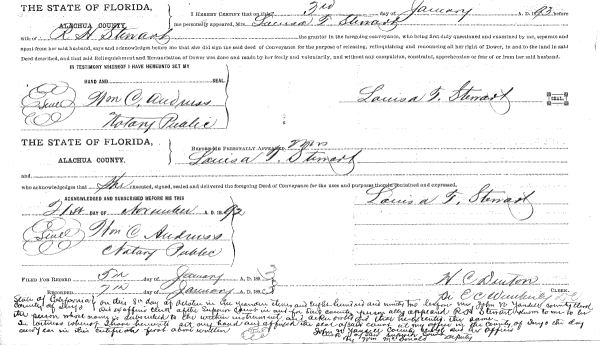 THE STATE OF FLORIDA,
ALACHUA COUNTY.
I HEREBY CERTIFY that on this 3rd day of January A. D. 189 before
me personally appeared, Mrs Louisa T. Stewart
wife of R H Stewart the grantor in the foregoing conveyance, who being first duly questioned and examined by me, separate and
apart from her said husband, says and acknowledges before me that she did sign the said deed of Conveyance for the purpose of releasing, relinquishing and renouncing all her right of Dower, in and to the land in said
Deed described, and that said Relinquishment and Renunciation of Dower was done and made by her freely and voluntarily, and without any compulsion, constraint, apprehension or fear of or from her said husband.
IN TESTIMONY WHEREOF I HAVE HEREUNTO SET MY
HAND AND SEAL.
Seal
Wm C. Andruss
Notary Public
Louisa T. Stewart
SEAL.
THE STATE OF FLORIDA,
ALACHUA COUNTY.
BEFORE ME PERSONALLY APPEARED, Mrs
Louisa T. Stewart
and
who acknowledges that She executed, signed, sealed and delivered the foregoing Deed of Conveyance for the uses and purposes therein contained and expressed.
ACKNOWLEDGED AND SUBSCRIBED BEFORE ME THIS
21st DAY OF November A. D. 1892
Louisa T. Stewart
Seal
Wm C Andruss
Notary Public
FILED FOR RECORD 5th day of January A. D. 1893
RECORDED 7th day of January A. D. 1893
H C Denton
CLERK.
Pr E C Wimberly D C
State of California
County of Inyo
on this 3d day of October in the year one thousand eight hundred and ninety two before me, John N Yandell county clerk
and ex officio clerk of the Superior Court in and for said county personally appeared R H Stewart known to me to be
the person whose name is subscribed to the within instrument and acknowledged that he executed the same.
In witness whereof I have hereunto set my hand and affixed the seal of said court at my office in the county of Inyo the day
and year in this certificate first above written
John N Yandell County Clerk and ex officio
Clerk of said Superior Court
By Wm McDonald Deputy